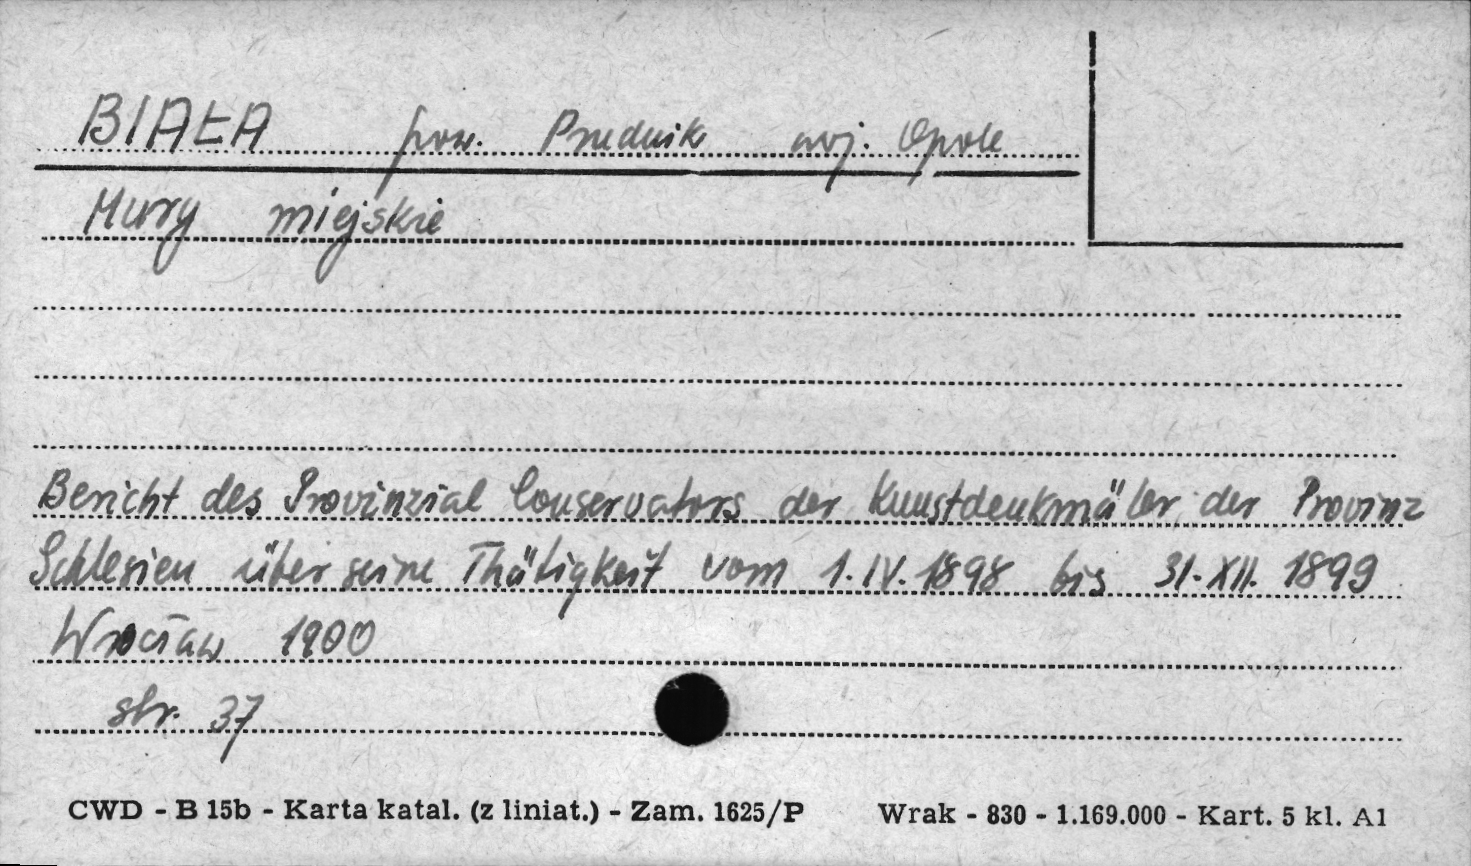 BIAŁA pow. Prudnik woj. Opole
Mury miejskie
Bericht des Provinzial Conservators der Kunstdenkmäler der Provinz
Schlesien über seine Thätigkeit vom 1.IV.1898 bis 31.XII.1899
Wrocław 1900
str. 37
CWD - B 15b - Karta katal. (z liniat.) - Zam. 1625/P Wrak - 830 - 1.169.000 - Kart. 5 kl. A1